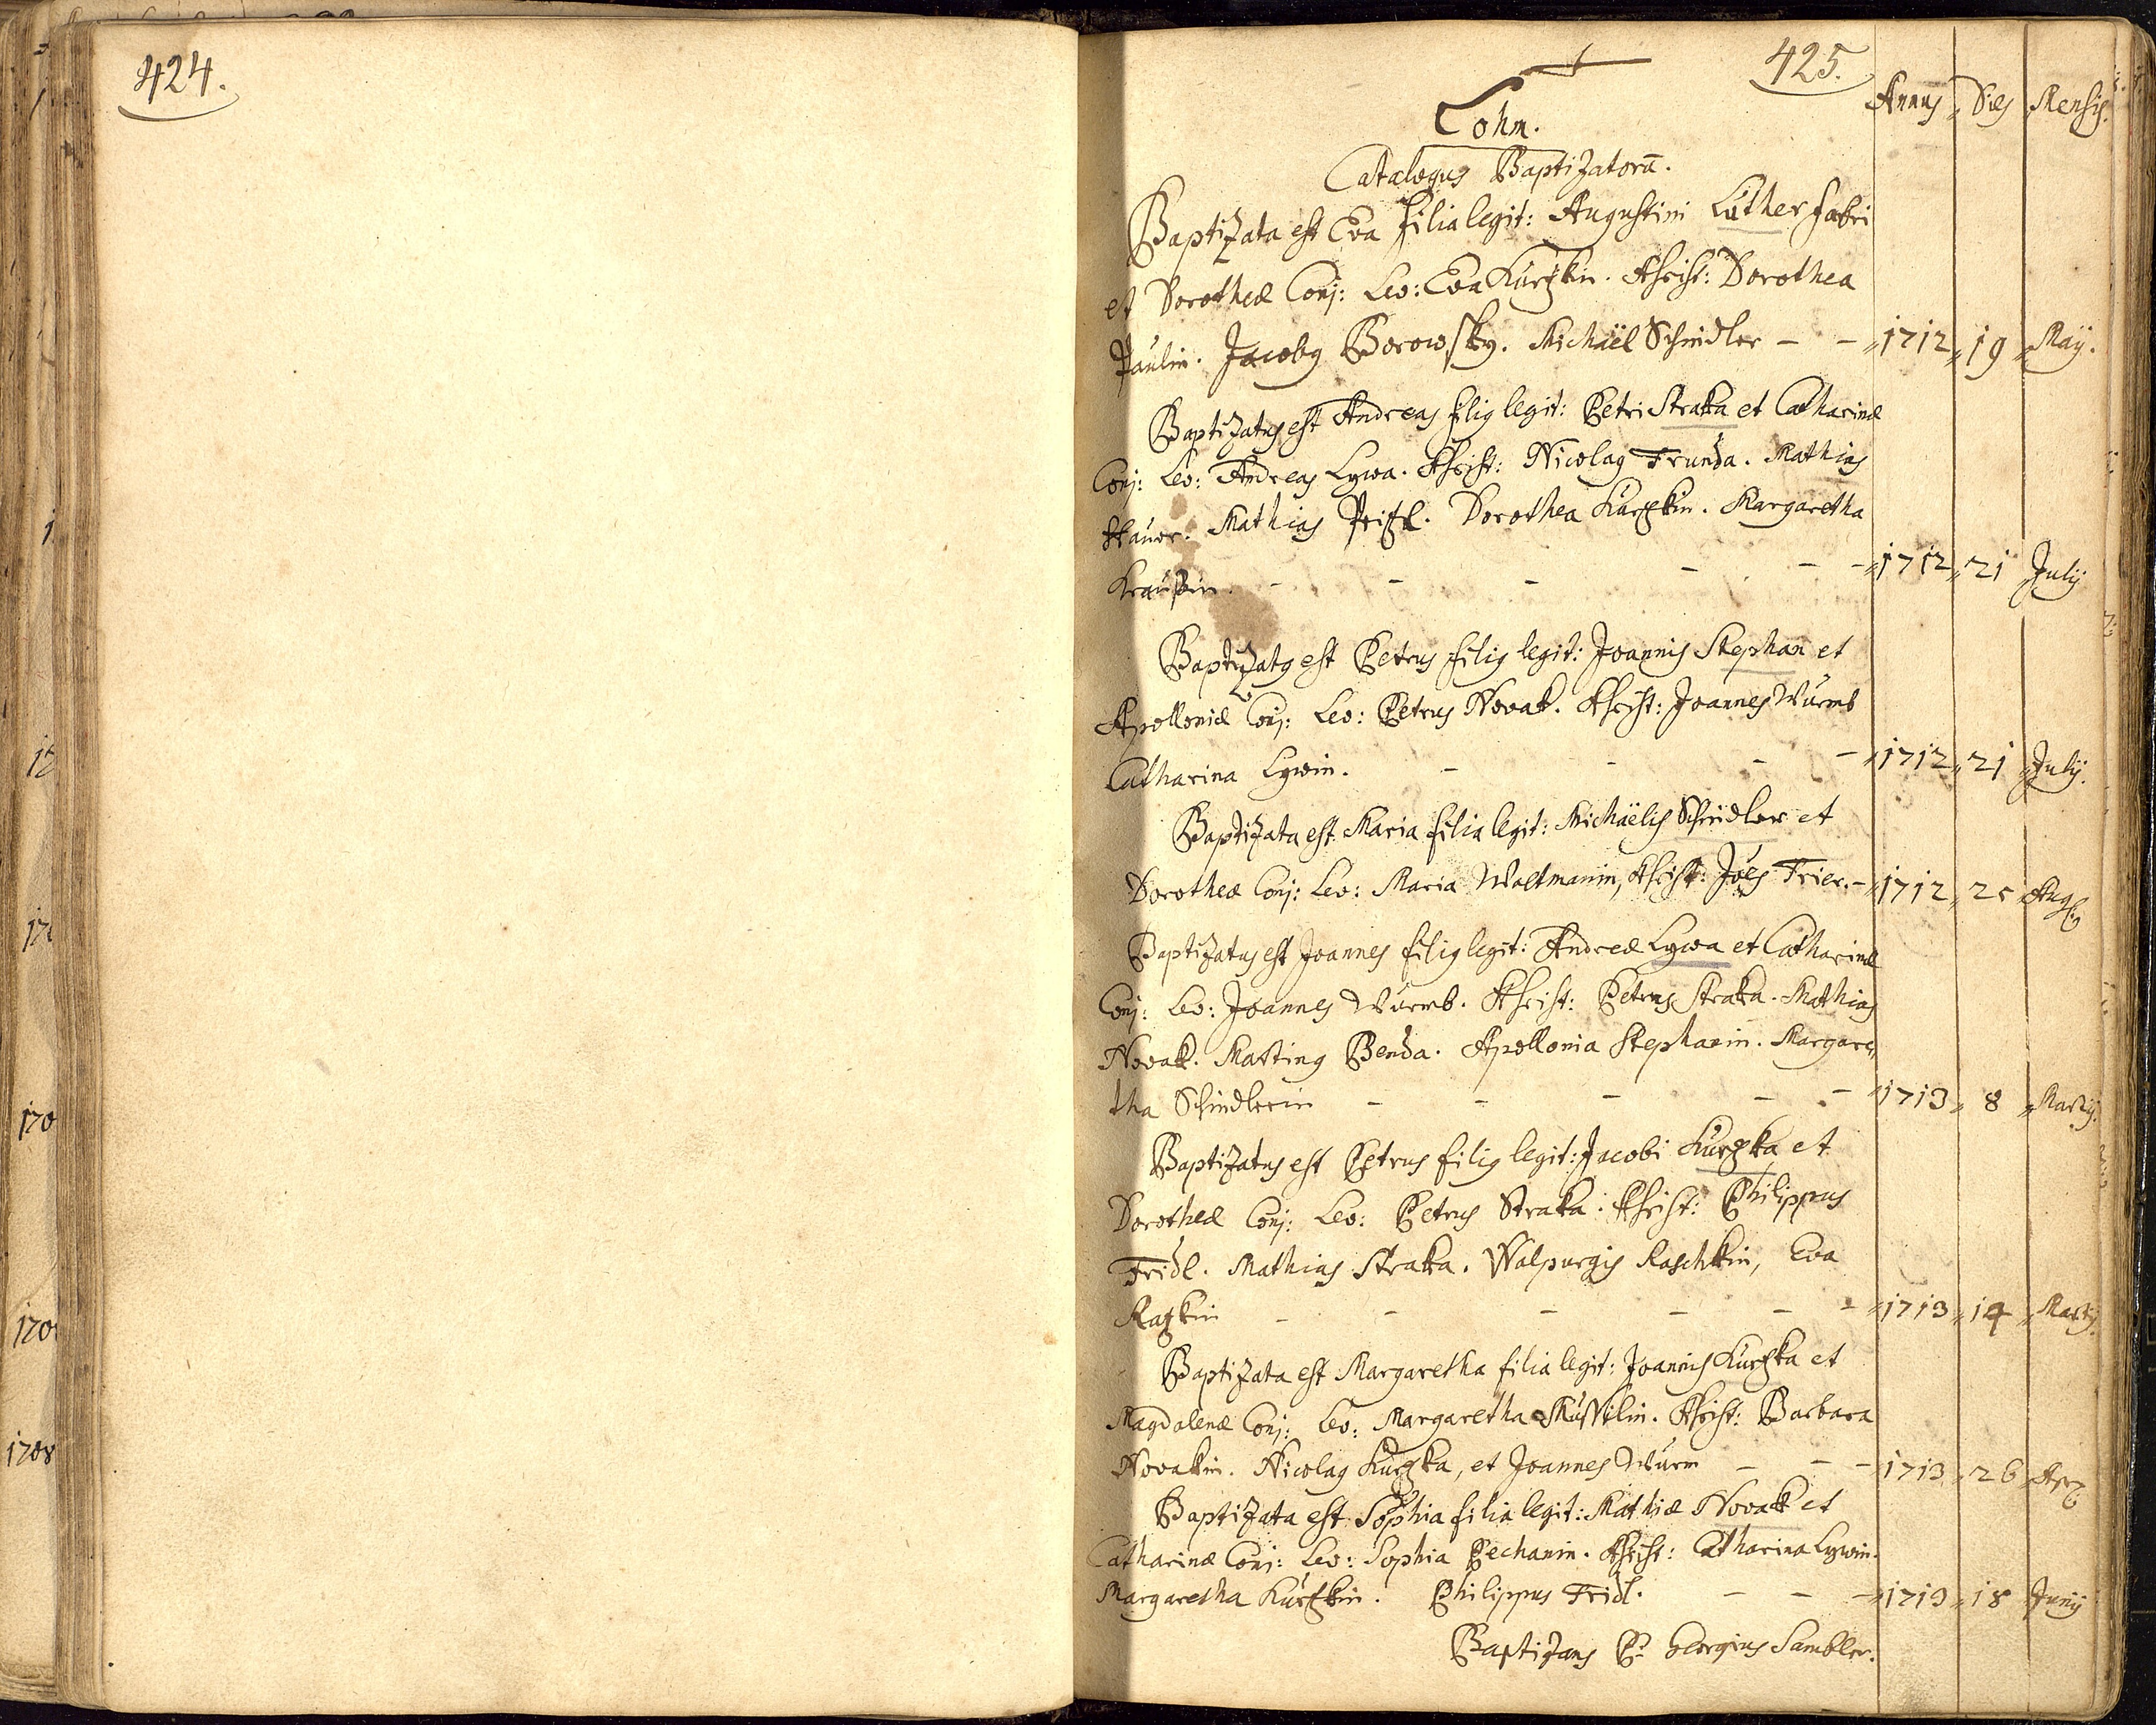 424.
425.
Annus Dies Mensis.
Lohm.
Catalogus Baptizatorū.
Baptizata est Eva filia legit: Augustini Luther fabri
et Dorotheæ Conj: Lev: Eva Kurzkin. Assist: Dorothea
Paulin. Jacobg Borowsky. Michäel Schindler - - „1712„ 19 „Maÿ.
Baptizatus est Andreas filig legit: Petri Straka et Catharinæ
Conj: Lev: Andreas Lywa. Assist: Nicolag Trunda. Mathias
Mathias Dorothea Kurzkin. Margaretha
Kraußin. - - - - - - „1712„ 21 Julij
Baptizatg est Petrus filig legit: Joannis Stephan et
Apolloniæ Conj: Lev: Petrus Novak. Assist: Joannes Wurmb
Catharina Lywin. - - - - „1712„ 21 „Julij.
Baptizata est Maria filia legit: Michäelis Schindler et
Dorotheæ Conj: Lev: Maria Woltmanin, Assist: Joēs Trier. - „1712„ 25 Aug
Baptizatus est Joannes filig legit: Andreæ Lywa et Catharinæ
Conj: Lev: Joannes Wurmb. Assist: Petrus Straka. Mathias
Novak. Marting Benda. Apollonia Stephanin. Margare„
tha Schindlerin - - - - - „1713„ 8 „Martij.
Baptizatus est Petrus filig legit: Jacobi Kurzka et
Dorotheæ Conj: Lev: Petrus Straka. Assist: Philippus
Fridl. Mathias Straka. Walpurgis Raschkin, Eva
Razkin - - - - - - „1713„ 14 „Martij.
Baptizata est Margaretha filia legit: Joannis Kurzka et
Magdalenæ Conj: Lev: Margaretha Assist: Barbara
Novakin. Nicolag Kurzka, et Joannes Wurm - - - 1713„ 26 Apr
Baptizata est Sophia filia legit: Mathiæ Novak et
Catharinæ Conj: Lev: Sophia Pechanin. Assist: Catharina Lywin.
Margaretha Kurzkin. Philippus Fridl. - - - „1713„ 18 Junij
Baptizans P. Georgius Sambler.